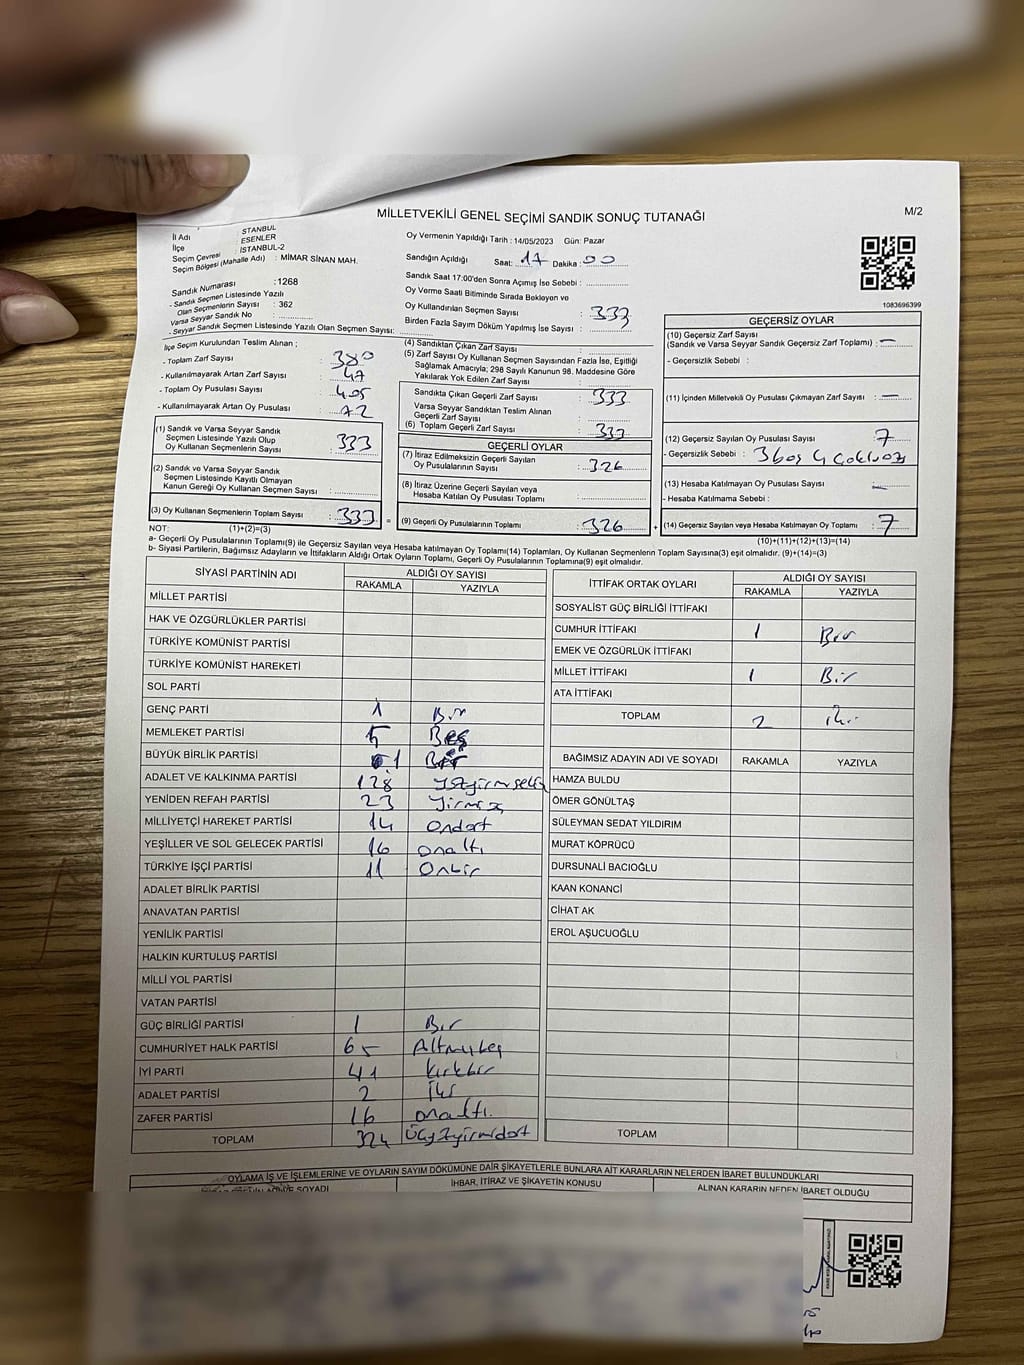 MİLLETVEKİLİ GENEL SEÇİMİ SANDIK SONUÇ TUTANAĞI
M/2
İl Adı STANBUL
İlçe : ESENLER
Seçim Çevresi : İSTANBUL-2
Seçim Bölgesi (Mahalle Adı) : MİMAR SİNAN MAH.
Sandık Numarası :1268
- Sandık Seçmen Listesinde Yazılı
Olan Seçmenlerin Sayısı : 362
Varsa Seyyar Sandık No :
- Seyyar Sandık Seçmen Listesinde Yazılı Olan Seçmen Sayısı:
Oy Vermenin Yapıldığı Tarih : 14/05/2023 Gün: Pazar
Sandığın Açıldığı Saat: 17 Dakika : 00
Sandık Saat 17:00'den Sonra Açımış İse Sebebi :
Oy Verme Saati Bitiminde Sırada Bekleyen ve
Oy Kullandırılan Seçmen Sayısı : 333
Birden Fazla Sayım Döküm Yapılmış İse Sayısı :
1083696399
İlçe Seçim Kurulundan Teslim Alınan ;
- Toplam Zarf Sayısı : 380
- Kullanılmayarak Artan Zarf Sayısı : 47
- Toplam Oy Pusulası Sayısı : 405
- Kullanılmayarak Artan Oy Pusulası : 72
(1) Sandık ve Varsa Seyyar Sandık
Seçmen Listesinde Yazılı Olup
Oy Kullanan Seçmenlerin Sayısı : 333
(2) Sandık ve Varsa Seyyar Sandık
Seçmen Listesinde Kayıtlı Olmayan
Kanun Gereği Oy Kullanan Seçmen Sayısı :
(3) Oy Kullanan Seçmenlerin Toplam Sayısı : 333
(1)+(2)=(3)
(4) Sandıktan Çıkan Zarf Sayısı :
(5) Zarf Sayısı Oy Kullanan Seçmen Sayısından Fazla İse, Eşitliği
Sağlamak Amacıyla; 298 Sayılı Kanunun 98. Maddesine Göre
Yakılarak Yok Edilen Zarf Sayısı :
Sandıkta Çıkan Geçerli Zarf Sayısı : 333
Varsa Seyyar Sandıktan Teslim Alınan
Geçerli Zarf Sayısı :
(6) Toplam Geçerli Zarf Sayısı : 333
GEÇERLİ OYLAR
(7) İtiraz Edilmeksizin Geçerli Sayılan
Oy Pusulalarının Sayısı : 326
(8) İtiraz Üzerine Geçerli Sayılan veya
Hesaba Katılan Oy Pusulası Toplamı :
= (9) Geçerli Oy Pusulalarının Toplamı : 326 +
GEÇERSİZ OYLAR
(10) Geçersiz Zarf Sayısı
(Sandık ve Varsa Seyyar Sandık Geçersiz Zarf Toplamı) : —
- Geçersizlik Sebebi :
(11) İçinden Milletvekili Oy Pusulası Çıkmayan Zarf Sayısı : —
(12) Geçersiz Sayılan Oy Pusulası Sayısı : 7
- Geçersizlik Sebebi : 3 boş 4
(13) Hesaba Katılmayan Oy Pusulası Sayısı : —
- Hesaba Katılmama Sebebi :
(14) Geçersiz Sayılan veya Hesaba Katılmayan Oy Toplamı : 7
(10)+(11)+(12)+(13)=(14)
NOT:
a- Geçerli Oy Pusulası Toplamı(9) ile Geçersiz Sayılan veya Hesaba katılmayan Oy Toplamı(14) Toplamları, Oy Kullanan Seçmenlerin Toplam Sayısına(3) eşit olmalıdır. (9)+(14)=(3)
b- Siyasi Partilerin, Bağımsız Adayların ve İttifakların Aldığı Ortak Oyların Toplamı, Geçerli Oy Pusulalarının Toplamına(9) eşit olmalıdır.
SİYASİ PARTİNİN ADI ALDIĞI OY SAYISI
RAKAMLA YAZIYLA
MİLLET PARTİSİ
HAK VE ÖZGÜRLÜKLER PARTİSİ
TÜRKİYE KOMÜNİST PARTİSİ
TÜRKİYE KOMÜNİST HAREKETİ
SOL PARTİ
GENÇ PARTİ 1 Bir
MEMLEKET PARTİSİ 5 Beş
BÜYÜK BİRLİK PARTİSİ 1 Bir
ADALET VE KALKINMA PARTİSİ 128
YENİDEN REFAH PARTİSİ 23
MİLLİYETÇİ HAREKET PARTİSİ 14 Ondört
YEŞİLLER VE SOL GELECEK PARTİSİ 16 onaltı
TÜRKİYE İŞÇİ PARTİSİ 11 Onbir
ADALET BİRLİK PARTİSİ
ANAVATAN PARTİSİ
YENİLİK PARTİSİ
HALKIN KURTULUŞ PARTİSİ
MİLLİ YOL PARTİSİ
VATAN PARTİSİ
GÜÇ BİRLİĞİ PARTİSİ 1 Bir
CUMHURİYET HALK PARTİSİ 65 Altmışbeş
İYİ PARTİ 41 kırkbir
ADALET PARTİSİ 2 İki
ZAFER PARTİSİ 16 onaltı.
TOPLAM 324 Üçyüzyirmidört
İTTİFAK ORTAK OYLARI ALDIĞI OY SAYISI
RAKAMLA YAZIYLA
SOSYALİST GÜÇ BİRLİĞİ İTTİFAKI
CUMHUR İTTİFAKI 1 Bir
EMEK VE ÖZGÜRLÜK İTTİFAKI
MİLLET İTTİFAKI 1 Bir
ATA İTTİFAKI
TOPLAM 2 iki
BAĞIMSIZ ADAYIN ADI VE SOYADI RAKAMLA YAZIYLA
HAMZA BULDU
ÖMER GÖNÜLTAŞ
SÜLEYMAN SEDAT YILDIRIM
MURAT KÖPRÜCÜ
DURSUNALİ BACIOĞLU
KAAN KONANCİ
CİHAT AK
EROL AŞUCUOĞLU
TOPLAM
OYLAMA İŞ VE İŞLEMLERİNE VE OYLARIN SAYIM DÖKÜMÜNE DAİR ŞİKAYETLERLE BUNLARA AİT KARARLARIN NELERDEN İBARET BULUNDUKLARI
ADI VE SOYADI İHBAR, İTİRAZ VE ŞİKAYETİN KONUSU ALINAN KARARIN NEDEN İBARET OLDUĞU